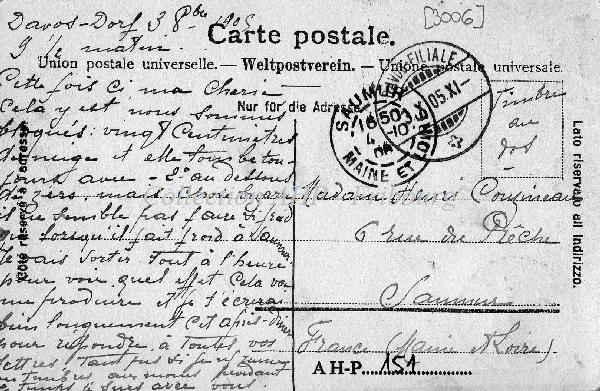 [3006]
Davos-Dorf 3 8bre 1905
9 h matin
Carte postale.
Union postale universelle. — Weltpostverein. — Unione postale universale.
Nur für die Adresse
Cette fois ci ma cherie
Cela y est nous sommes
bloqués: vingt centimètres
de neige et elle tombe tou-
jours avec - 2° au dessous
de zero, mais
il ne semble pas faire si froid
que lorsqu'il fait froid à Saumur
Je vais sortir tout à l'heure
pour voir quel effet cela va
me produire et je t'écrirai
bien longuement cet après-diner
pour repondre à toutes vos
lettres tant pis si je
timbres au moins pendant
ce temps je suis avec vous
SAUMUR
16 50
4 -10
MAINE ET LOIRE
FILIALE
05.XI-
Timbre
au
dos
Madame Henri Cousineau
6 rue du Prêche
Saumur
France (Maine et Loire)
Lato riservato all Indirizzo.
Côté réservé à l'adresse
A H-P. 151